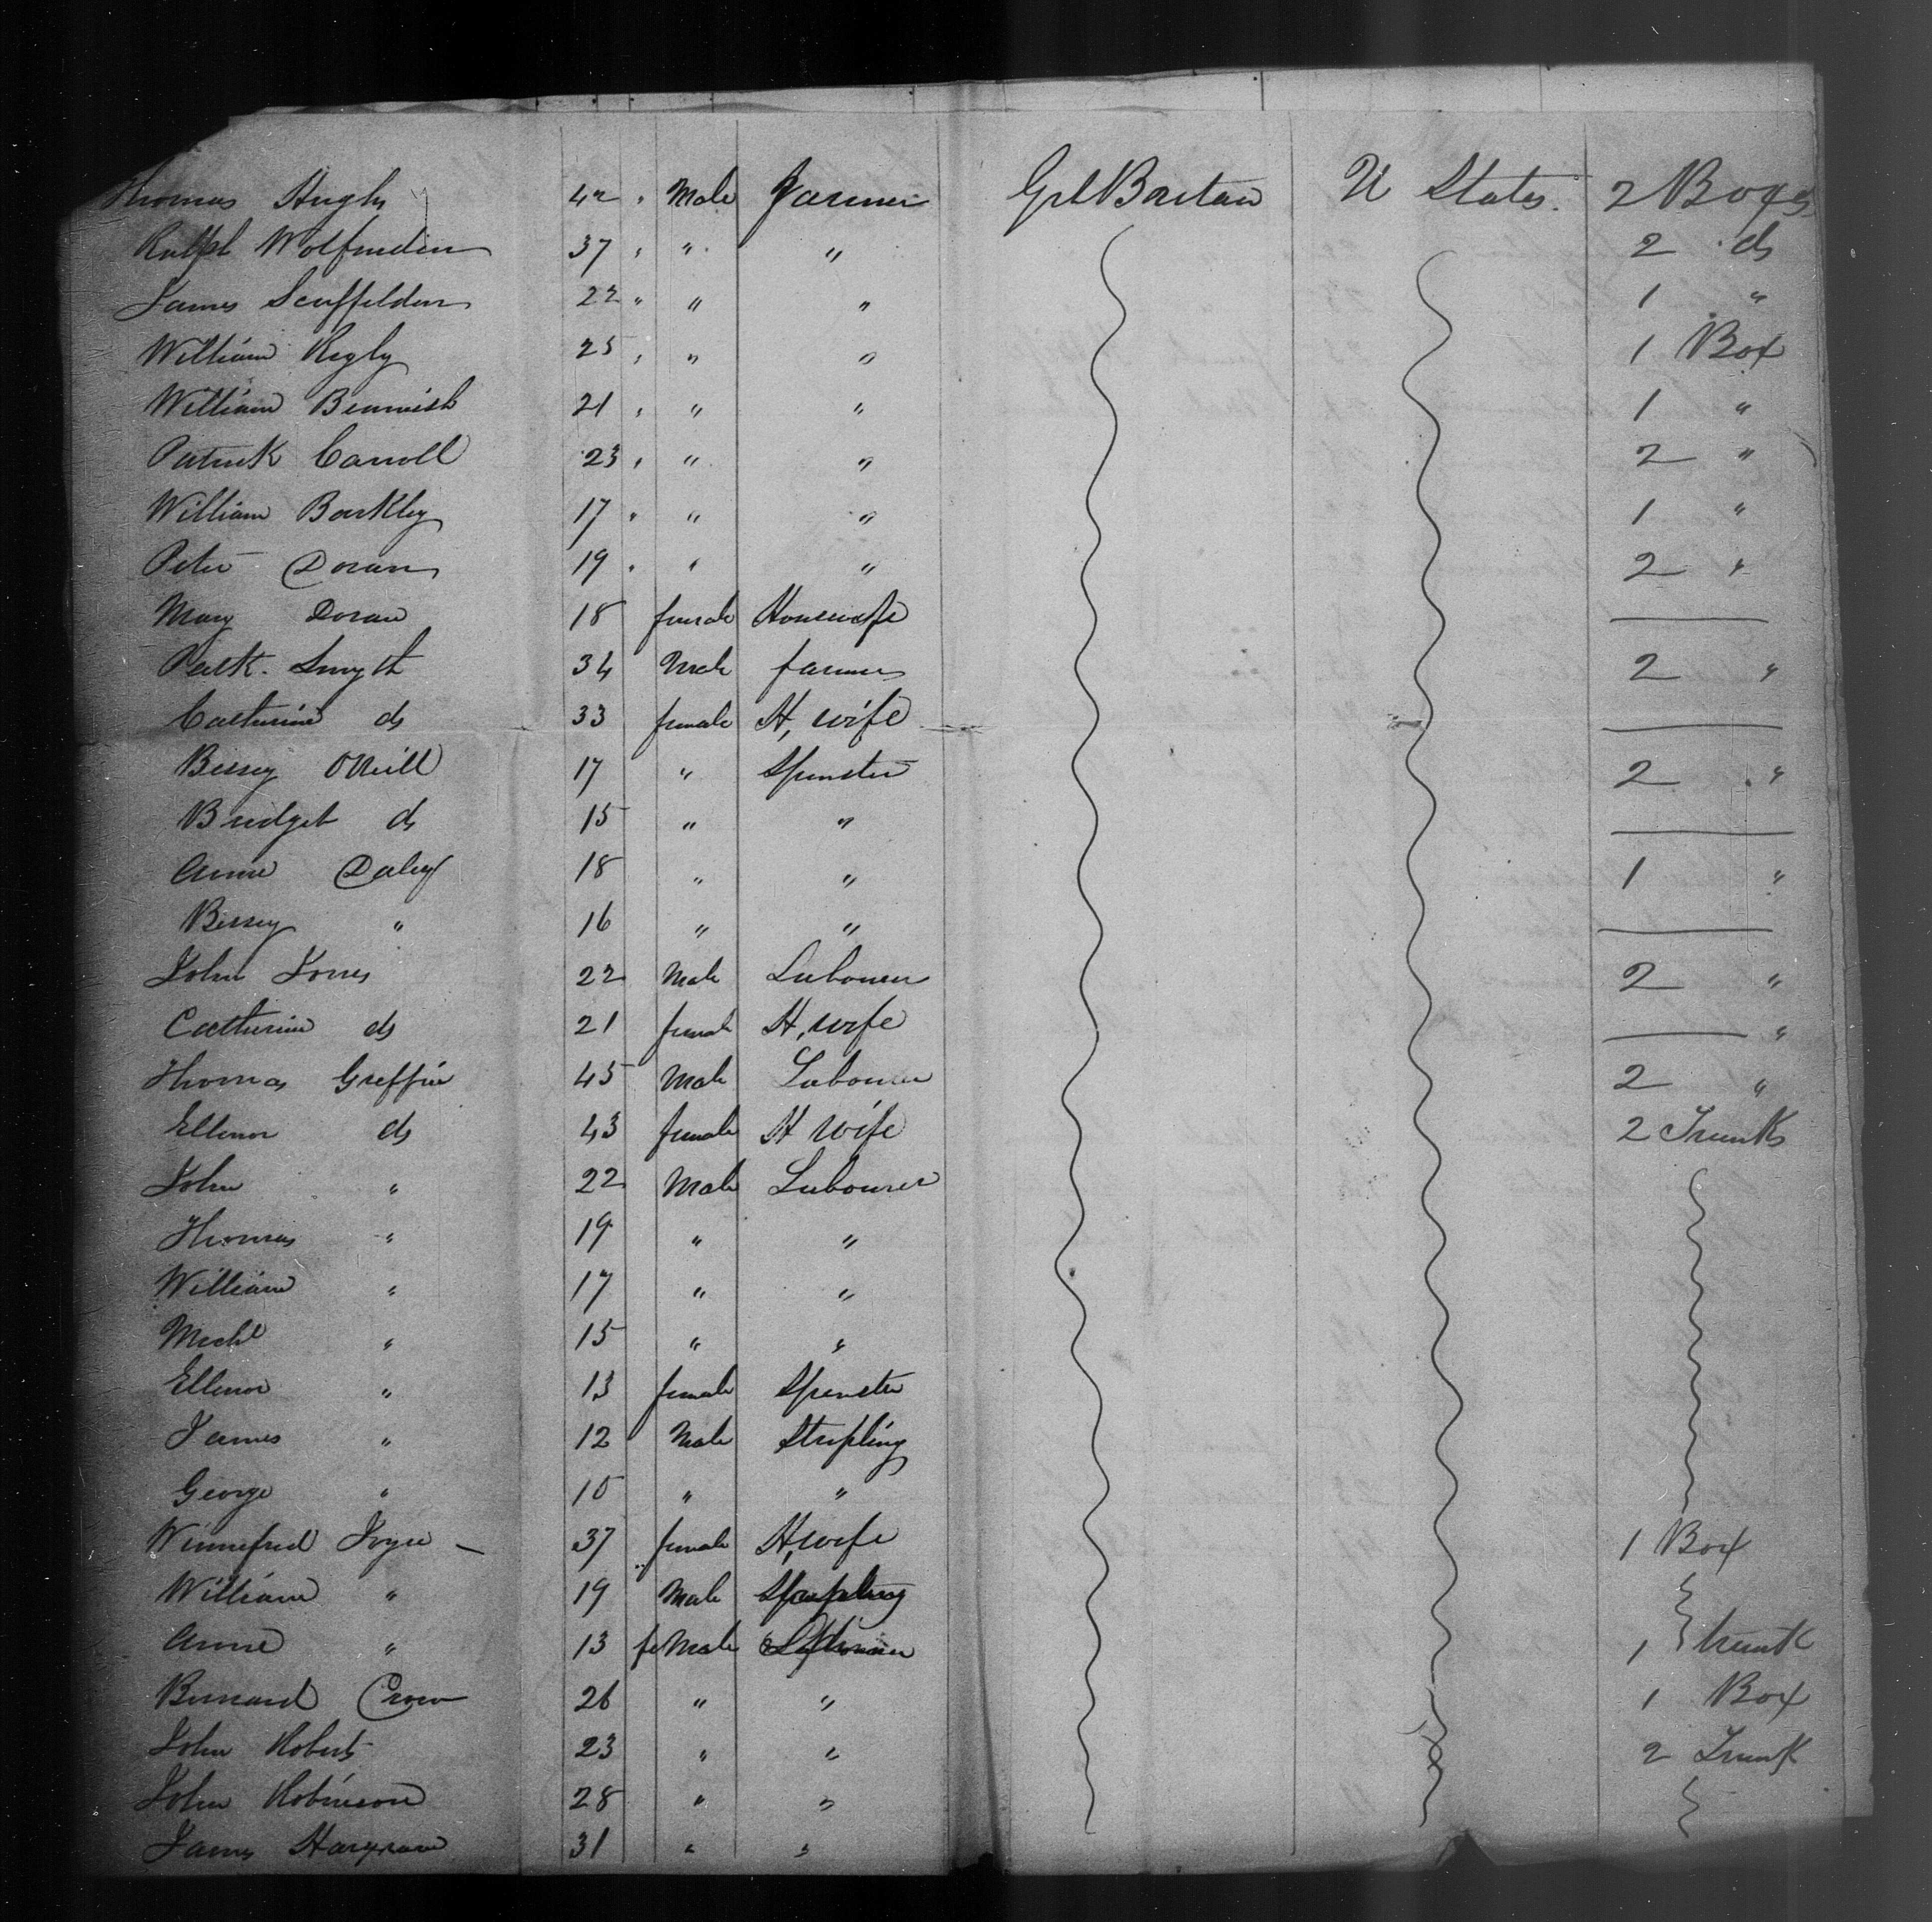 Thomas Hughs 42 " Male Farmer Grt Britain U States. 2 Boxes
Ralph Wolfenden 37 " " " 2 do
James Scuffelden 22 " " " 1 "
William Rigby 25 " " " 1 Box
William Beamish 21 " " " 1 "
Patrick Carroll 23 " " " 2 "
William Barkley 17 " " " 1 "
Peter Doran 19 " " " 2 "
Mary Doran 18 female Housewife
Patk. Smyth 34 Male farmer 2 "
Catherine do 33 female H, wife
Bessey ONeill 17 " Spinster 2 "
Bridget do 15 " "
Anne Daley 18 " " 1 "
Bessey " 16 " "
John Jones 22 Male Labourer 2 "
Catherine do 21 female H, wife "
Thomas Griffin 45 Male Labourer 2 "
Ellenor do 43 female H wife 2 Trunks
John " 22 Male Labourer
Thomas " 19 " "
William " 17 " "
Michl " 15 " "
Ellenor " 13 female Spinster
James " 12 Male Stripling
George " 10 " "
Winnefred Joyce 37 female H, wife 1 Box
William " 19 Male Stripling
Anne " 13 feMale Labourer 1 trunk
Bernard Crow 26 " " 1 Box
John Roberts 23 " " 2 Trunk
John Robinson 28 " "
James Hargrave 31 " "